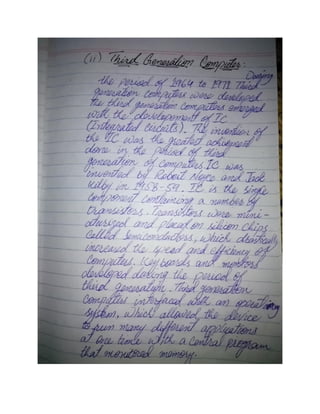 (ii) Third Generation Computer:
During
the period of 1964 to 1971 Third
generation computers were developed
the third generation computers emerged
with the development of IC
(Integrated circuits). The invention of
the IC was the greatest achivement
done in the period of third
generation of computers. IC was
invented by Robert Noyce and Jack
kilby in 1958-59. IC is the single
component containing a number of
transistors. Transistors were mini-
aturized and placed on silicon chips
called semiconductors, which drastically
increased the speed and efficiency of
computers. Keyboards and monitors
developed during the period of
third generation. Third generation
computer interfaced with an operating
system, which allowed the device
to run many different applications
at one time with a central program
that monitored memory.